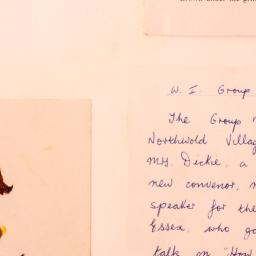 W. I. Group
The Group
Northwold Villag
Mrs. Dickie, a
new convenor,
speaker for the
Essex, who ga
talk on "How